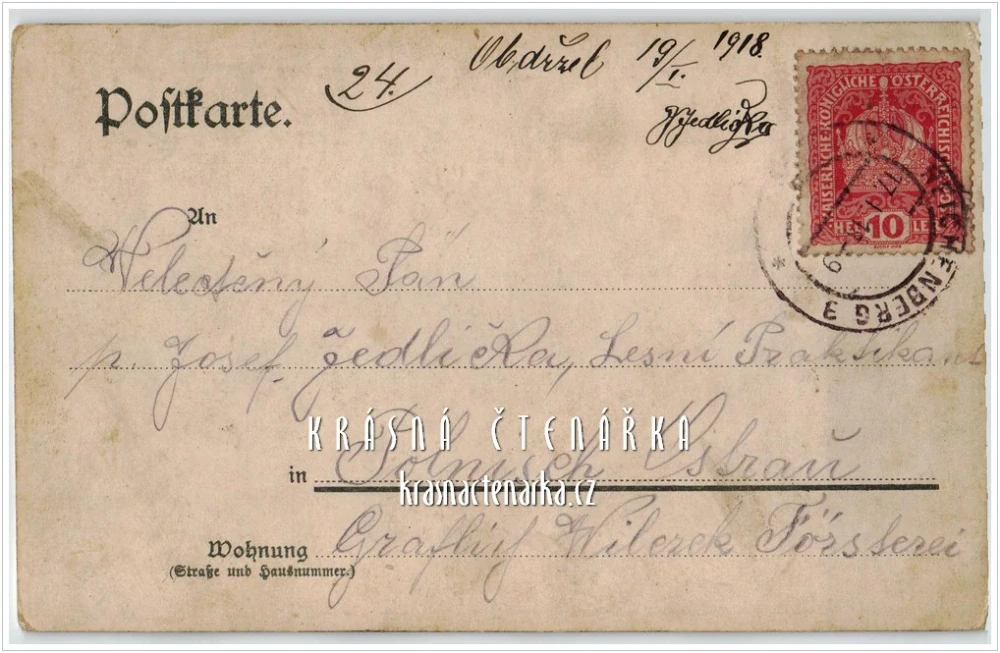 24. Obdržel 19/I. 1918.
JJedlička
Postkarte.
KAISERLICHE KÖNIGLICHE ÖSTERREICHISCHE POST
HELLER
10
REICHENBERG 3
*
An
Velectěný Pán
p. Josef Jedlička, Lesní Praktikant
KRÁSNÁ ČTENÁŘKA
in Polnisch Ostrau
krasnactenarka.cz
Wohnung Graflich Wilczek Försterei
(Straße und Hausnummer.)